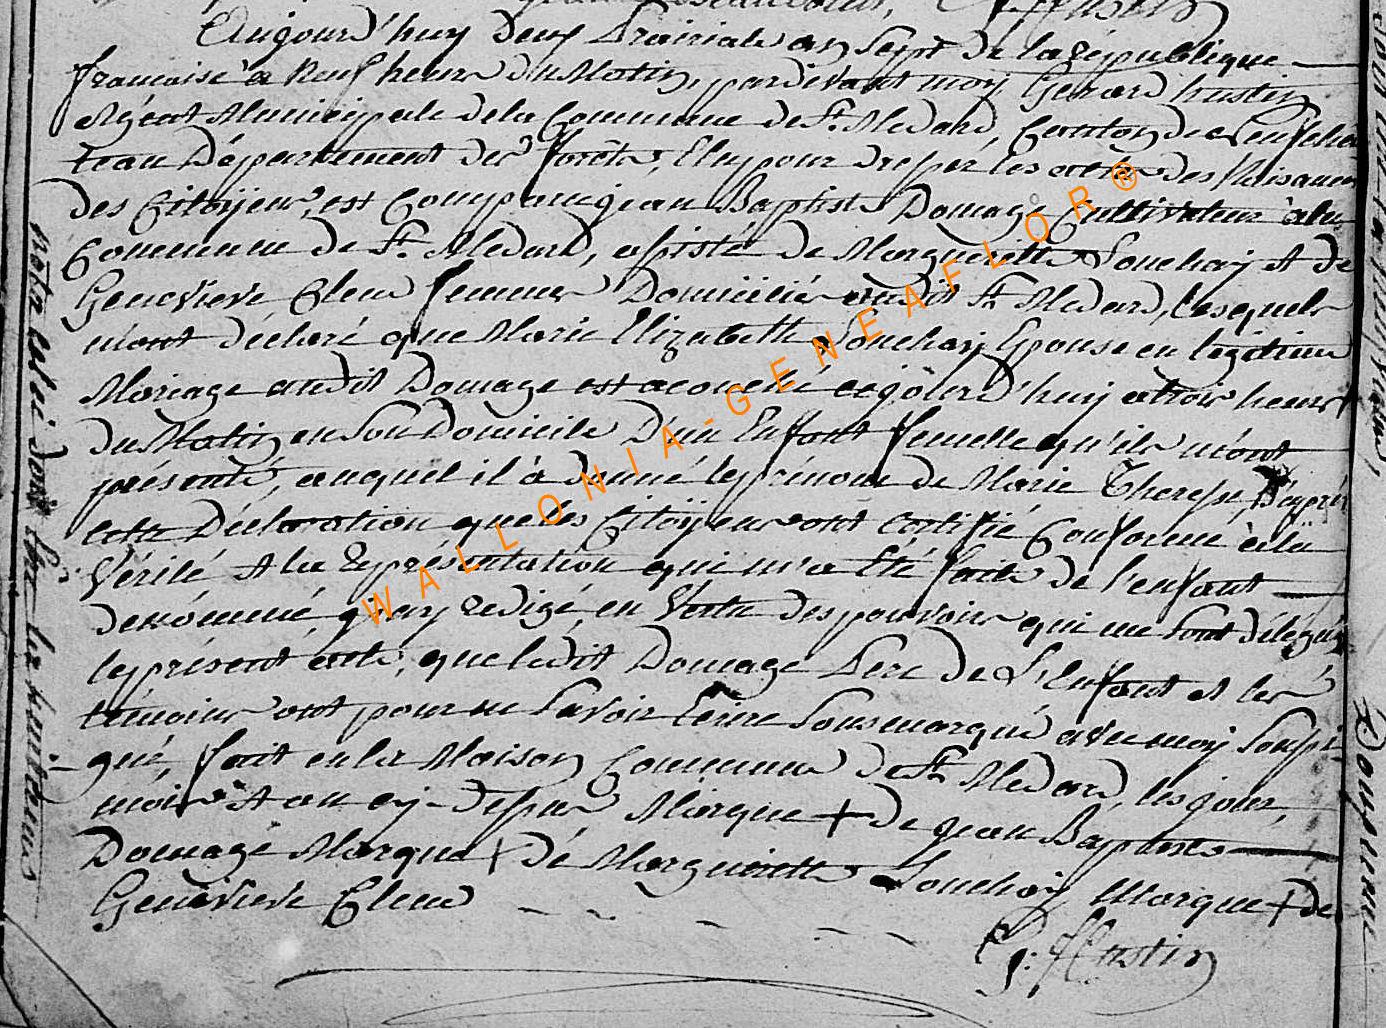 Aujourd'huy deux Prairiale an Sept de la République
francaise à Neuf heure du Matin, pardevant moy Gerard hustin
Agent Municipale de la Commune de St. Medard, Canton de Neufcha
teau Département des forêts, Elu pour dresser les actes des Naisances
des Citoÿens, est Comparu jean Baptiste Domage Cultivateur à la
Commune de St. Medard, assisté de Margueritte Souchay et de
Genevieve Cleu femmes Domicilié audit St. Medard, lesquels
m'ont déclaré que Marie Elizabeth Souchay Epouse en légitime
Mariage audit Domage est acouché cejourd'huy à trois heure
du Matin en Son Domicile D'un Enfant femelle qu'ils m'ont
présenté, auquel il à donné les prénoms de Marie Therese, D'après
cette Déclaration que les Citoÿens ont certifié Conforme à la
Vérité et la Représentation qui m'a été faite de l'enfant
denommé, j'ai redigé, en Vertu des pouvoirs qui me sont délégués
le présent acte, que ledit Domage Pere de L'Enfant et les
témoins ont pour ne Savoir Ecrire Sousmarqué avec moy Soussi
gné, fait en la Maison Commune de St. Medard, les jour,
mois et an cy-dessus Marque + de jean Baptiste
Domage Marque + dé Margueritte Souchay Marque + de
Genevieve Cleu
G: Hustin